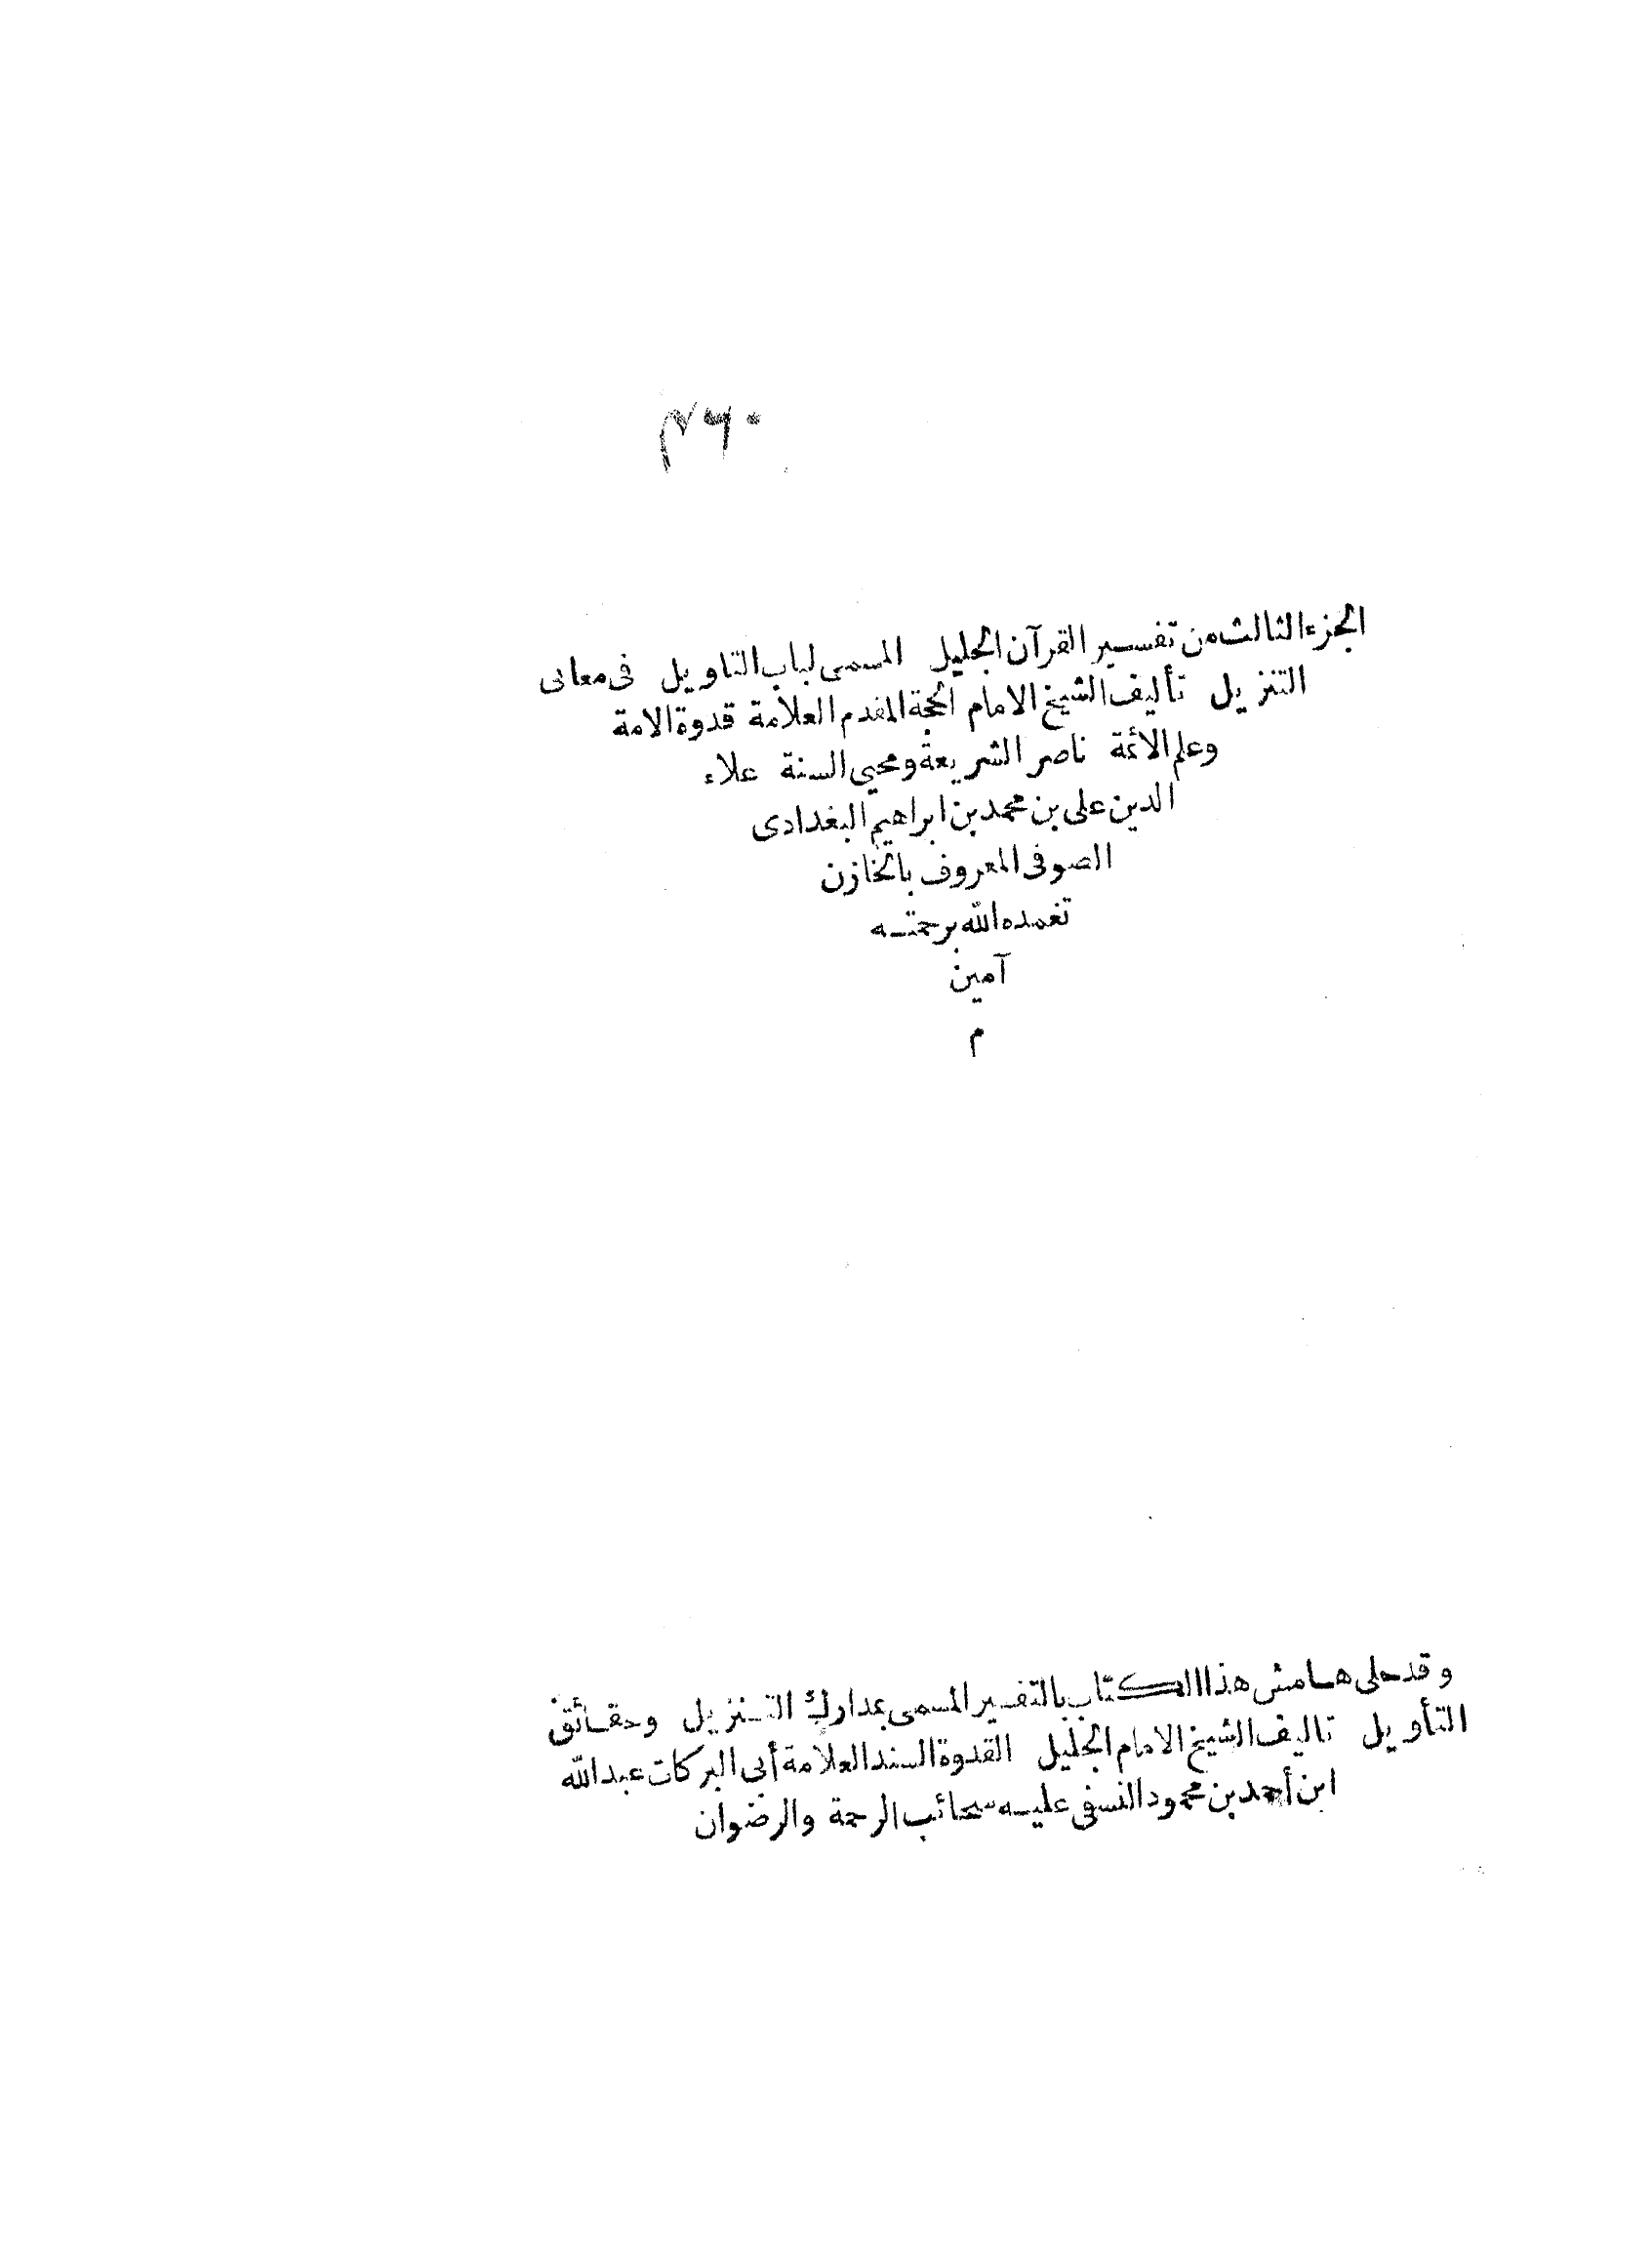 الجزء الثالث من تفسير القرآن الجليل المسمى لباب التاويل فى معانى
التنزيل تأليف الشيخ الامام الحجة المقدم العلامة قدوة الامة
وعلم الائمة ناصر الشريعة ومحيي السنة علاء
الدين على بن محمد بن ابراهيم البغدادى
الصوفى المعروف بالخازن
تغمده الله برحمته
آمين
م
وقد حلى هامش هذا الكتاب بالتفسير المسمى بمدارك التنزيل وحقائق
التأويل تاليف الشيخ الامام الجليل القدوة السند العلامة أبى البركات عبد الله
ابن أحمد بن محمود النسفى عليه سحائب الرحمة والرضوان